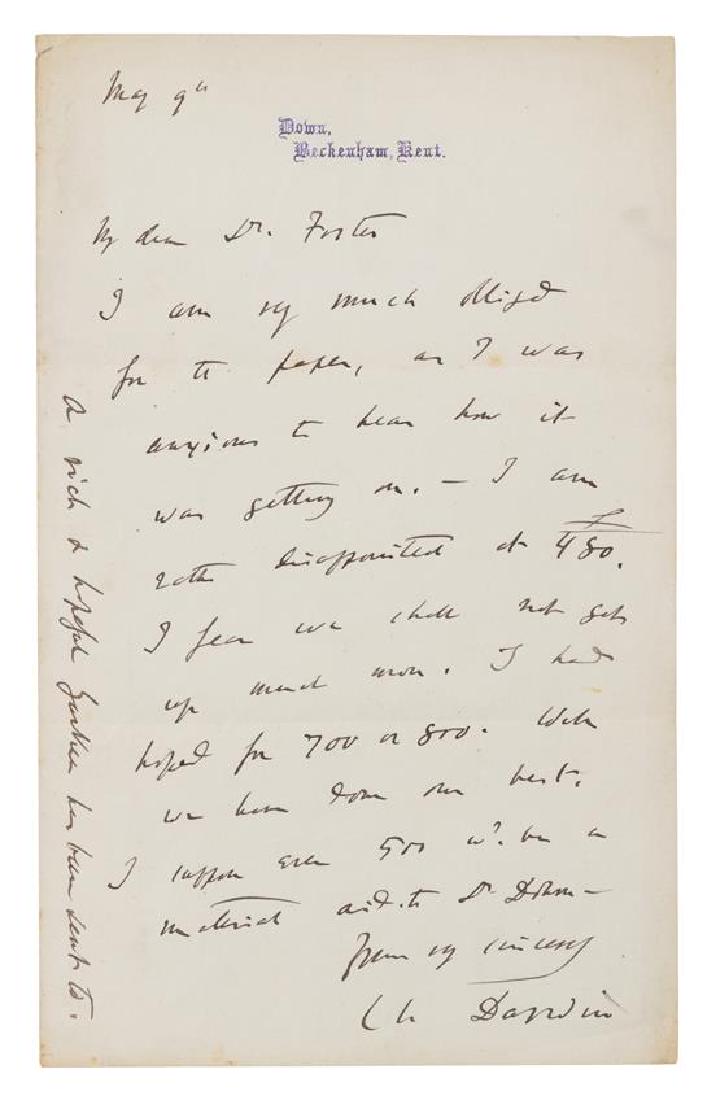 May 9th
Down,
Beckenham, Kent.
My dear Dr. Foster
I am very much obliged
for the paper, as I was
anxious to hear how it
was getting on. — I am
rather disappointed at £480.
I fear we shall not get
up much more. I had
hoped for 700 or 800. Well
we have done our best.
I suppose even 500 wd. be a
material aid to Dr Dohrn —
yours very sincerely
Ch Darwin
A rich & hopeful has been sent to.